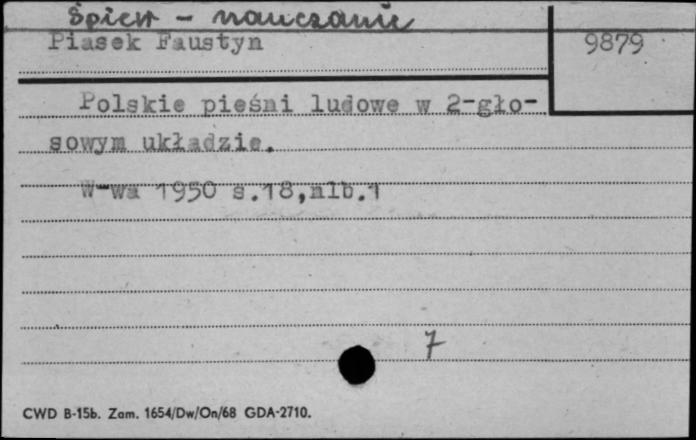 Śpiew - nauczanie
Piasek Faustyn
9879
Polskie pieśni ludowe w 2-gło-
sowym układzie.
W-wa 1950 s.18,nlb.1
7
CWD B-15b. Zam. 1654/Dw/On/68 GDA-2710.